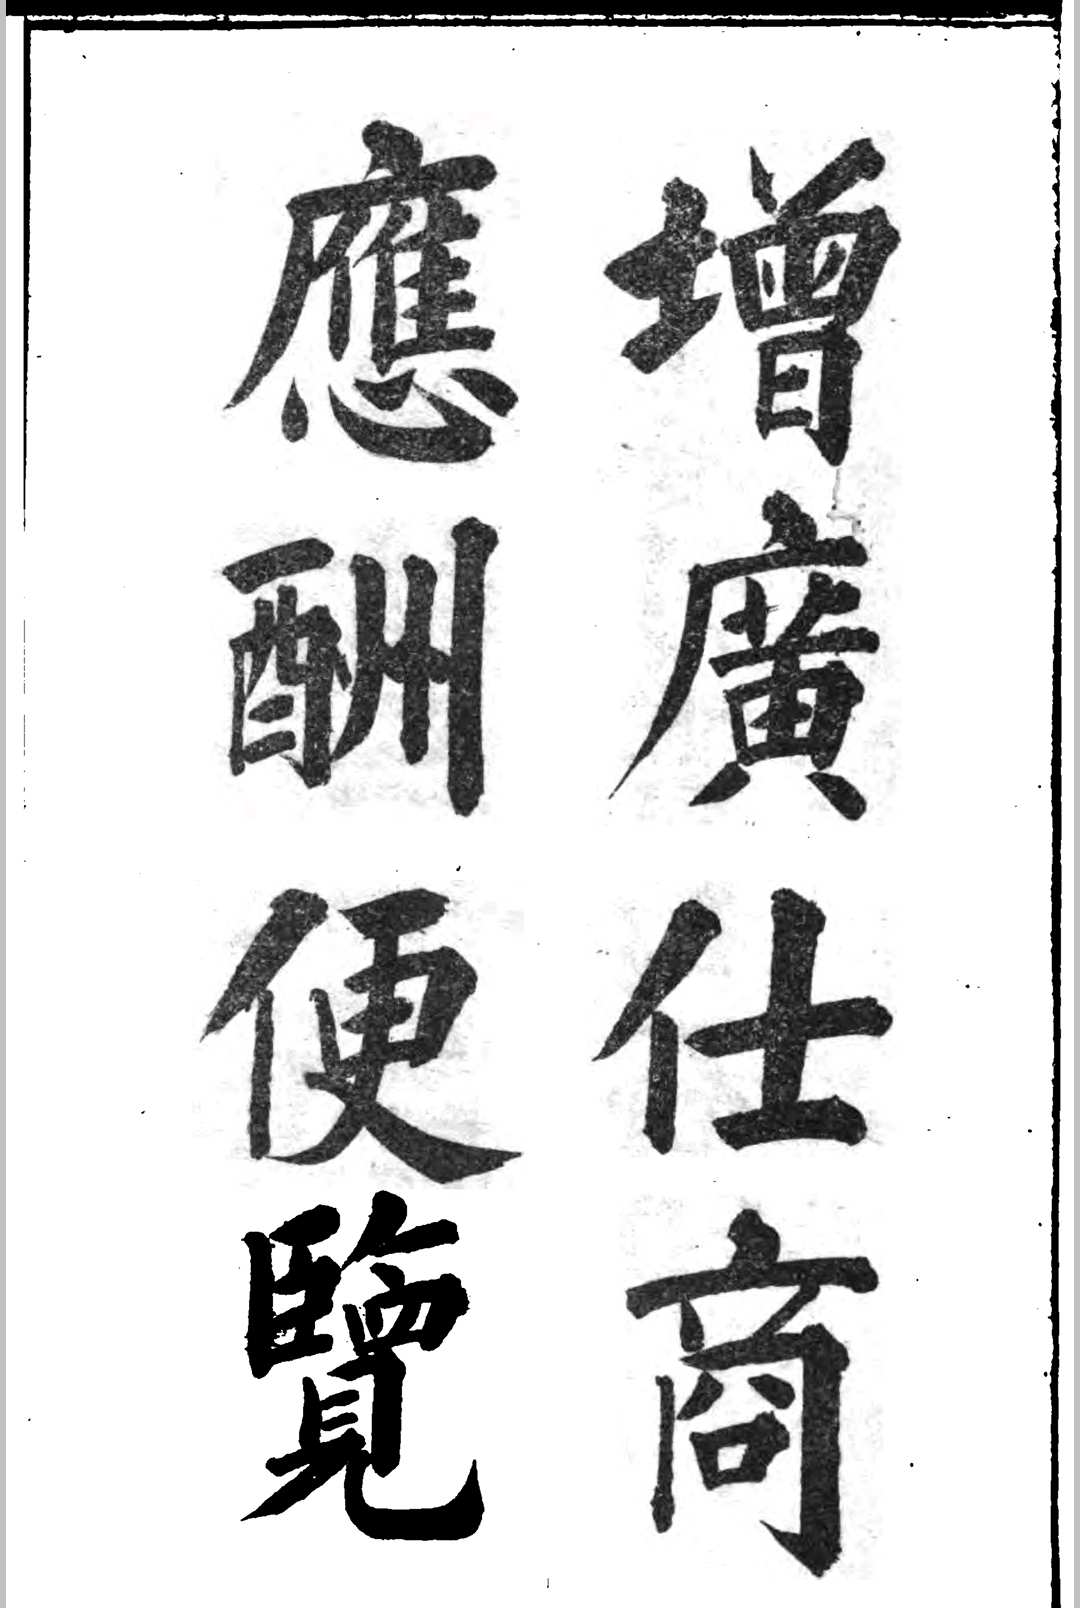 增廣仕商
應酬便覽